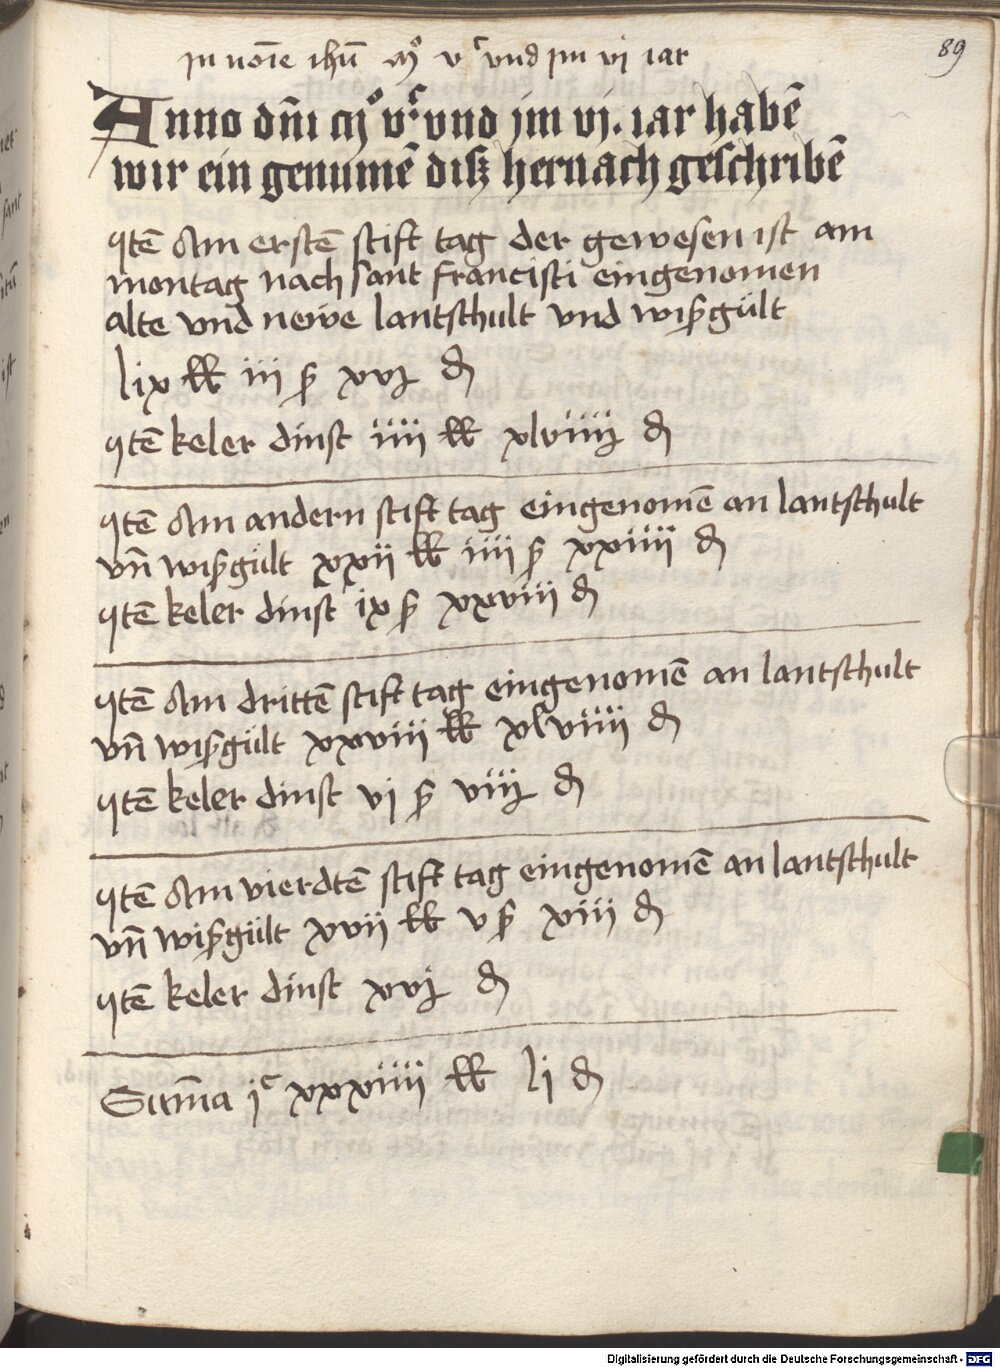 89
jn noīe ihū mͦ vᶜ vnd jm vj iar
Anno dnī mͦ vᶜ vnd jm vj. iar habē
wir ein genumē diß hernach geschribē
Itē Am erstē stift tag der gewesen ist am
montag nach sant francisci eingenomen
alte vnd newe lantschult vnd wißgült
lix ℔ iii ß xvj ₰
Itē keler dinst iiii ℔ xlviiij ₰
Itē Am andern stift tag eingenomē an lantschult
vn̄ wißgült xxii ℔ iiii ß xxiiii ₰
Itē keler dinst ix ß xxviii ₰
Itē Am drittē stift tag eingenomē an lantschult
vn̄ wißgült xxviii ℔ xlviiii ₰
Itē keler dinst vj ß viij ₰
Itē Am vierdtē stift tag eingenomē an lantschult
vn̄ wißgült xvii ℔ v ß xiii ₰
Itē keler dinst xvj ₰
Sum̄a jᶜ xxxiiii ℔ lj ₰
Digitalisierung gefördert durch die Deutsche Forschungsgemeinschaft - DFG